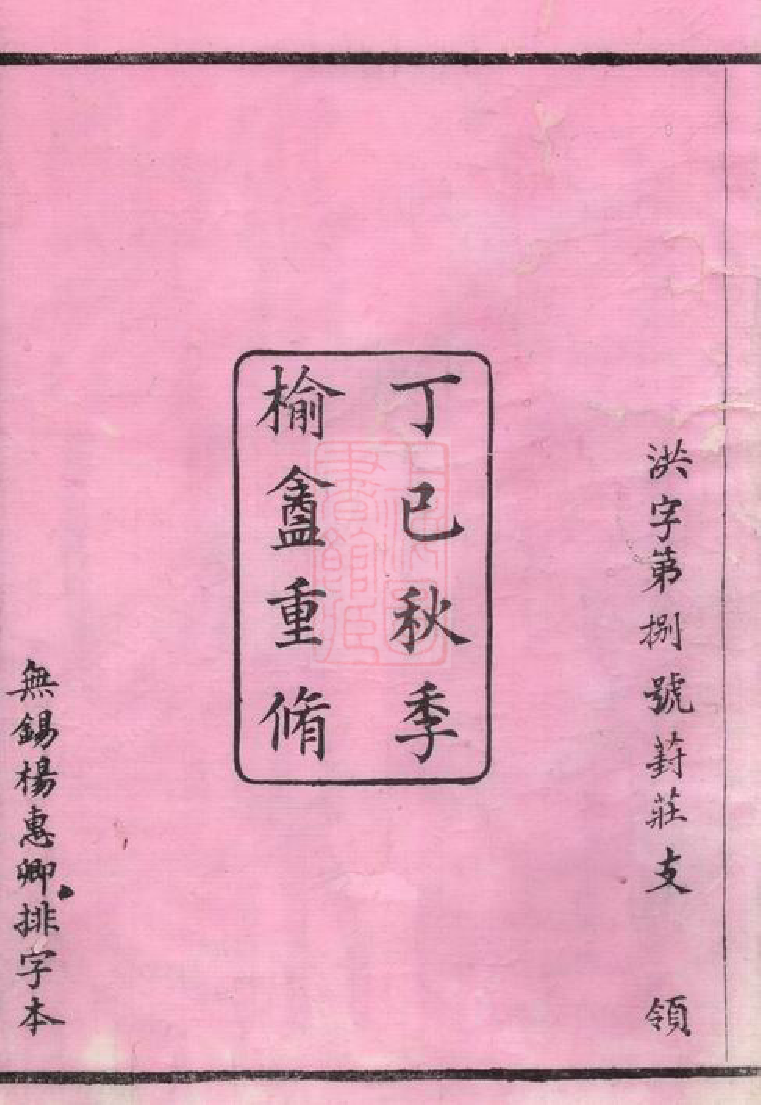 洪字第捌號葑莊支 領
丁巳秋季
榆盦重脩
無錫楊惠卿排字本